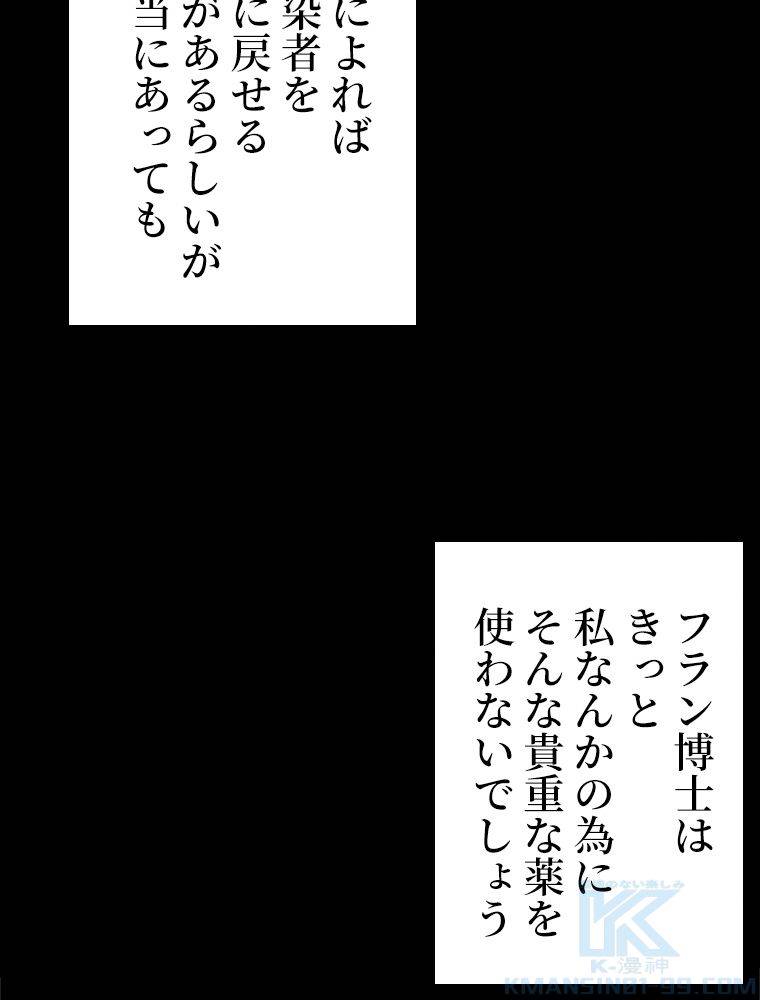 によれば
染者を
に戻せる
があるらしいが
当にあっても
フラン博士は
きっと
私なんかの為に
そんな貴重な薬を
使わないでしょう
K-漫神
KMANSIN01-99.COM